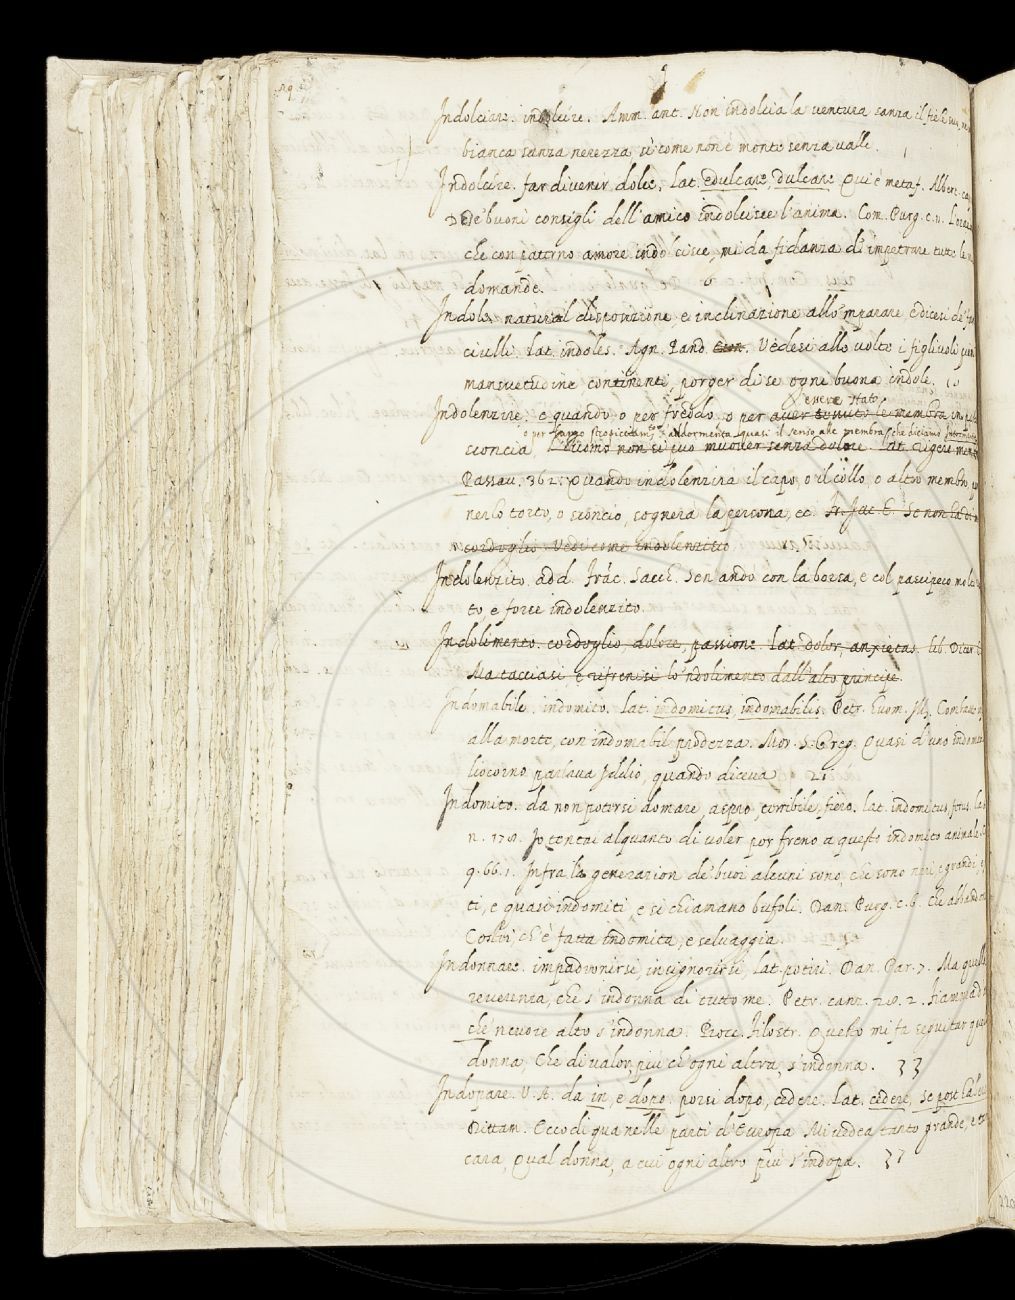 Indolciare. indolcíre. Amm. ant. Non indolcia la ventura sanza il fiele
bianca sanza nerezza, sì come non è monte senza valle.
Indolcíre. far divenir dolce, Lat. edulcare, dulcare Qui è metaf. Albert. cap.
De' buoni consigli dell'amico indolcisce l'anima. Com. Purg. c. 11.
che con paterno amore indolcisce, mi da fidanza di impetrare tutte le
domande.
Indole, natural disposizione e inclinazione allo mparare, e dicesi de' fan
ciulli. Lat. indoles. Agn. Pand. Vedesi allo volto i figlivoli
mansuetudine continenti, porger di se ogni buona indole.
essere stato
Indolenzire, e quando o per freddo, o per aver tenuto le membra in
o per troppo s'addormenta quasi il senso alle membra, che diciamo
sconcia, l'uomo non si può muover senza dolore Lat. rigere
Passav. 362. Quando indolenzirà il capo, o il collo, o altro membro,
nerlo torto, o sconcio, sognerà la persona, ec. Fr. Jac. T. Se non
cordoglio Vedi come indolenzito
Indolenzito. add. Franc. Sacch. Sen andò con la borsa, e col
to e forte indolenzito.
Indolimento. cordoglio, dolore, passione Lat. dolor, anxietas. lib. Dicer.
Ma tacciasi, e rifrenisi lo 'ndolimento dall'alto principe.
Indomabile. indomito. Lat. indomitus, indomabilis. Petr. huom. ill.
alla morte, con indomabil prodezza. Mor. S. Greg. Quasi d'uno indomito
liocorno parlava Iddio, quando diceva
Indomito. da non potersi domare, aspro, terribile, fiero. Lat. indomitus, ferus.
n. 178. Io tentai alquanto di voler por freno a questo indomito animale
9. 66. 1. Infra la generazion de' buoi alcuni sono, che sono neri, e grandi, e
ti, e quasi indomiti, e si chiamano bufoli. Dan. Purg. c. 6. Ch' abbandoni
Costei, ch'è fatta indomita, e selvaggia.
Indonnare. impadronirsi, insignorirsi, Lat. potiri. Dan. Par. 7. Ma quella
reverenza, che s'indonna di tutto me. Petr. canz. 28. 2.
che 'n cuore alto s'indonna. Bocc. Filostr. Questo mi fa seguitar
donna, Che di valor, più ch'ogni altra, s'indonna.
Indopare. V. A. da in, e dopo. porsi dopo, cedere. Lat. cedere, se post
Dittam. Eccoti qua nelle parti d'Europa Mi vedea tanto grande, e
cara, Qual donna, a cui ogni altro più s'indopa.